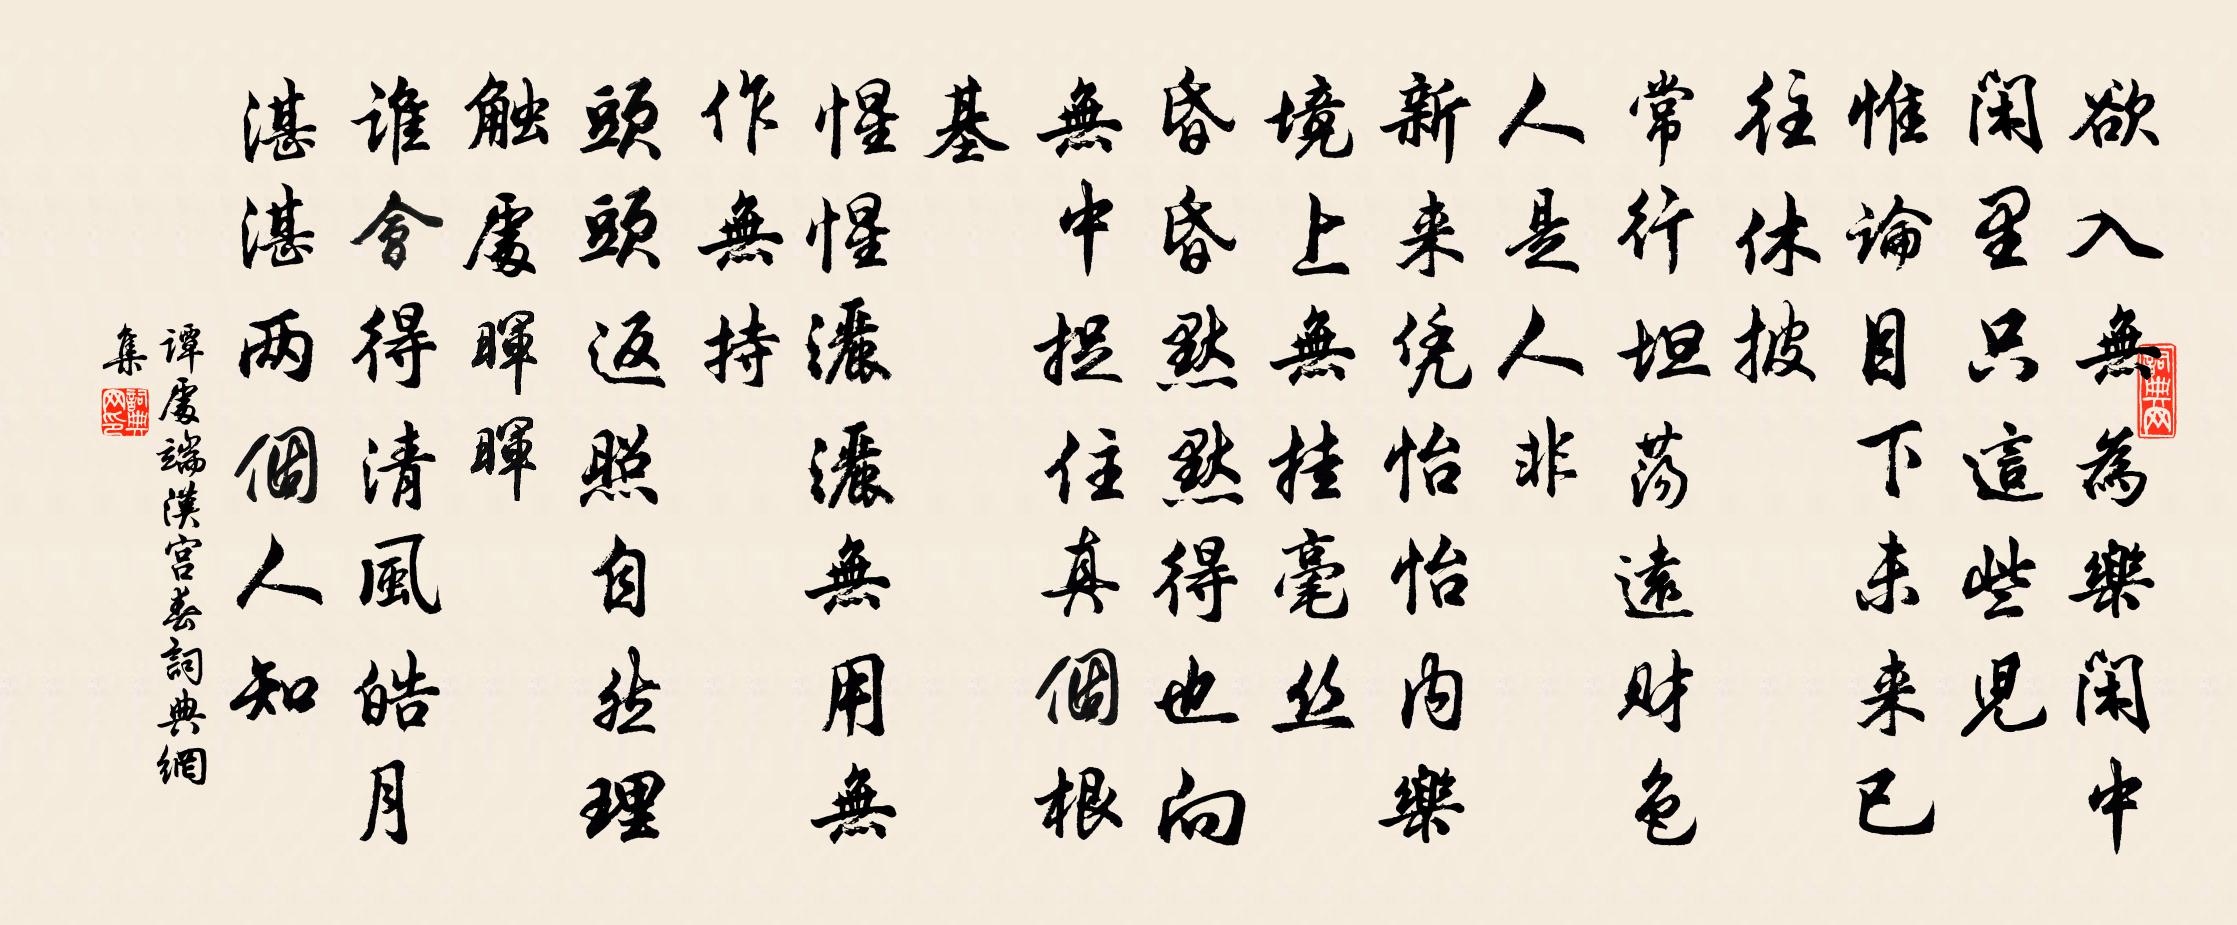 欲入無為樂閑中
閑里只這些兒
惟論目下未来已
往休披
常行坦荡遠财色
人是人非
新来凭怡怡内樂
境上無挂毫丝
昏昏默默得也向
無中捉住真個根
基
惺惺灑灑無用無
作無持
頭頭返照自然理
触處暉暉
谁會得清風皓月
湛湛两個人知
谭處端漢宫春詞典網
集
詞典网
詞典网印